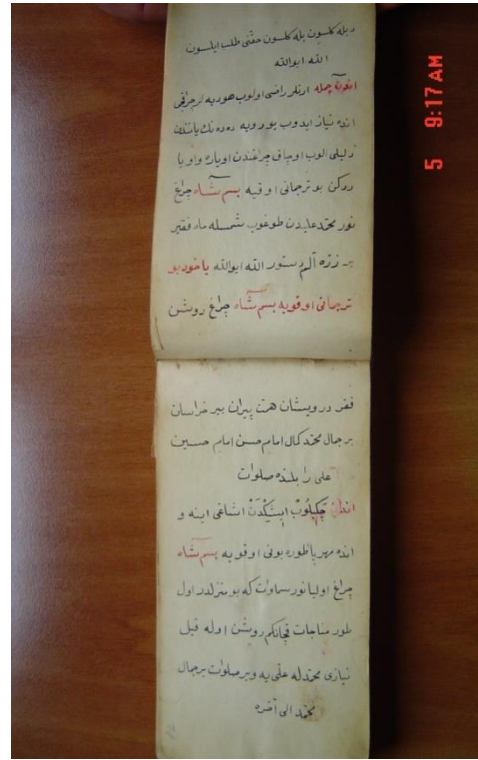 دیله کلسون بله کلسون حقنی طلب ایلسون
الله ایوالله
اندن جمله ارنلر راضی اولوب هو دیه لر چراغی
انده نیاز ایدوب یورویه دده نك یاننده
دلیلی الوب اوجاق چراغندن اویاره و اویا
ررکن بو ترجمانی اوقیه بسم شاه چراغ
نور محمد علیدن طوغوب شمسله ماه فقیر
بر زرّه آلم دستور الله ایوالله یاخود بو
ترجمانی اوقویه بسم شاه چراغ روشن
فقر درویشان همت پیران پیر خراسان
بر جمال محمد کمال امام حسن امام حسین
علی را بلنده صلوات
اندن چکیلوب ایشیکدن اشاغی اینه و
انده مهر یا طوره بونی اوقویه بسم شاه
چراغ اولیا نور سماوات که بو منزلدر اول
طور مناجات قچانکم روشن اوله قیل
نیازی محمدله علی یه ویر صلوات بر جمال
محمد الی آخره
5 9:17AM